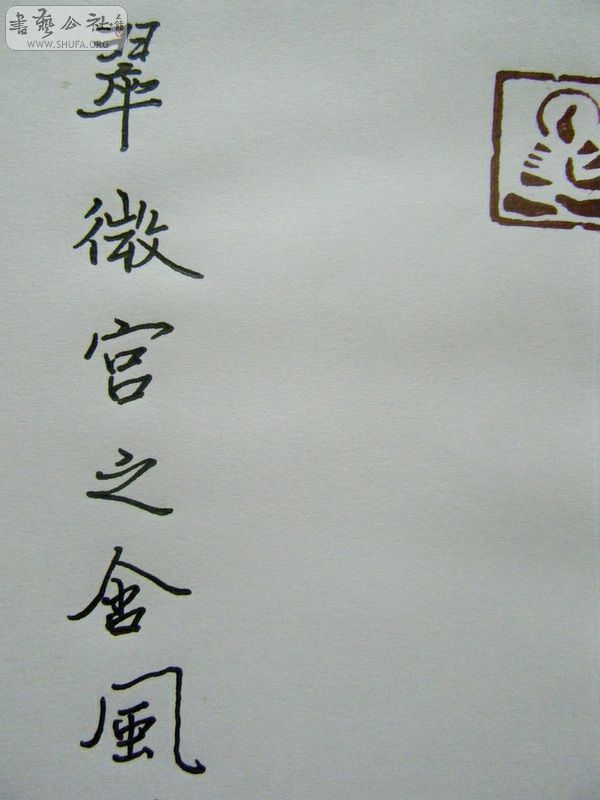 書藝公社
WWW.SHUFA.ORG
翠微宮之含風